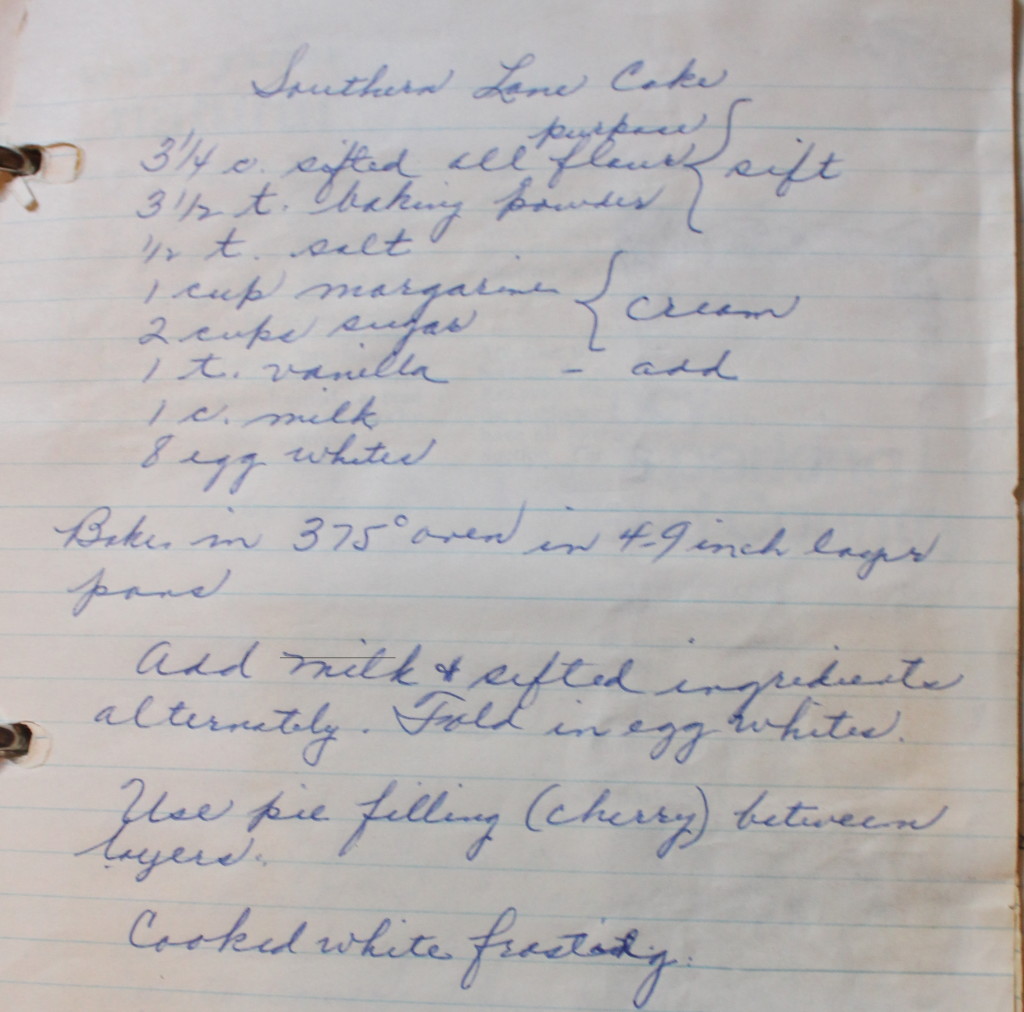 Southern Lane Cake
purpose
3 1/4 c. sifted all flour } sift
3 1/2 t. baking powder
1/2 t. salt
1 cup margarine } cream
2 cups sugar
1 t. vanilla - add
1 c. milk
8 egg whites
Bake in 375° oven in 4-9 inch layer
pans
Add milk & sifted ingredients
alternately. Fold in egg whites.
Use pie filling (cherry) between
layers.
Cooked white frosting.